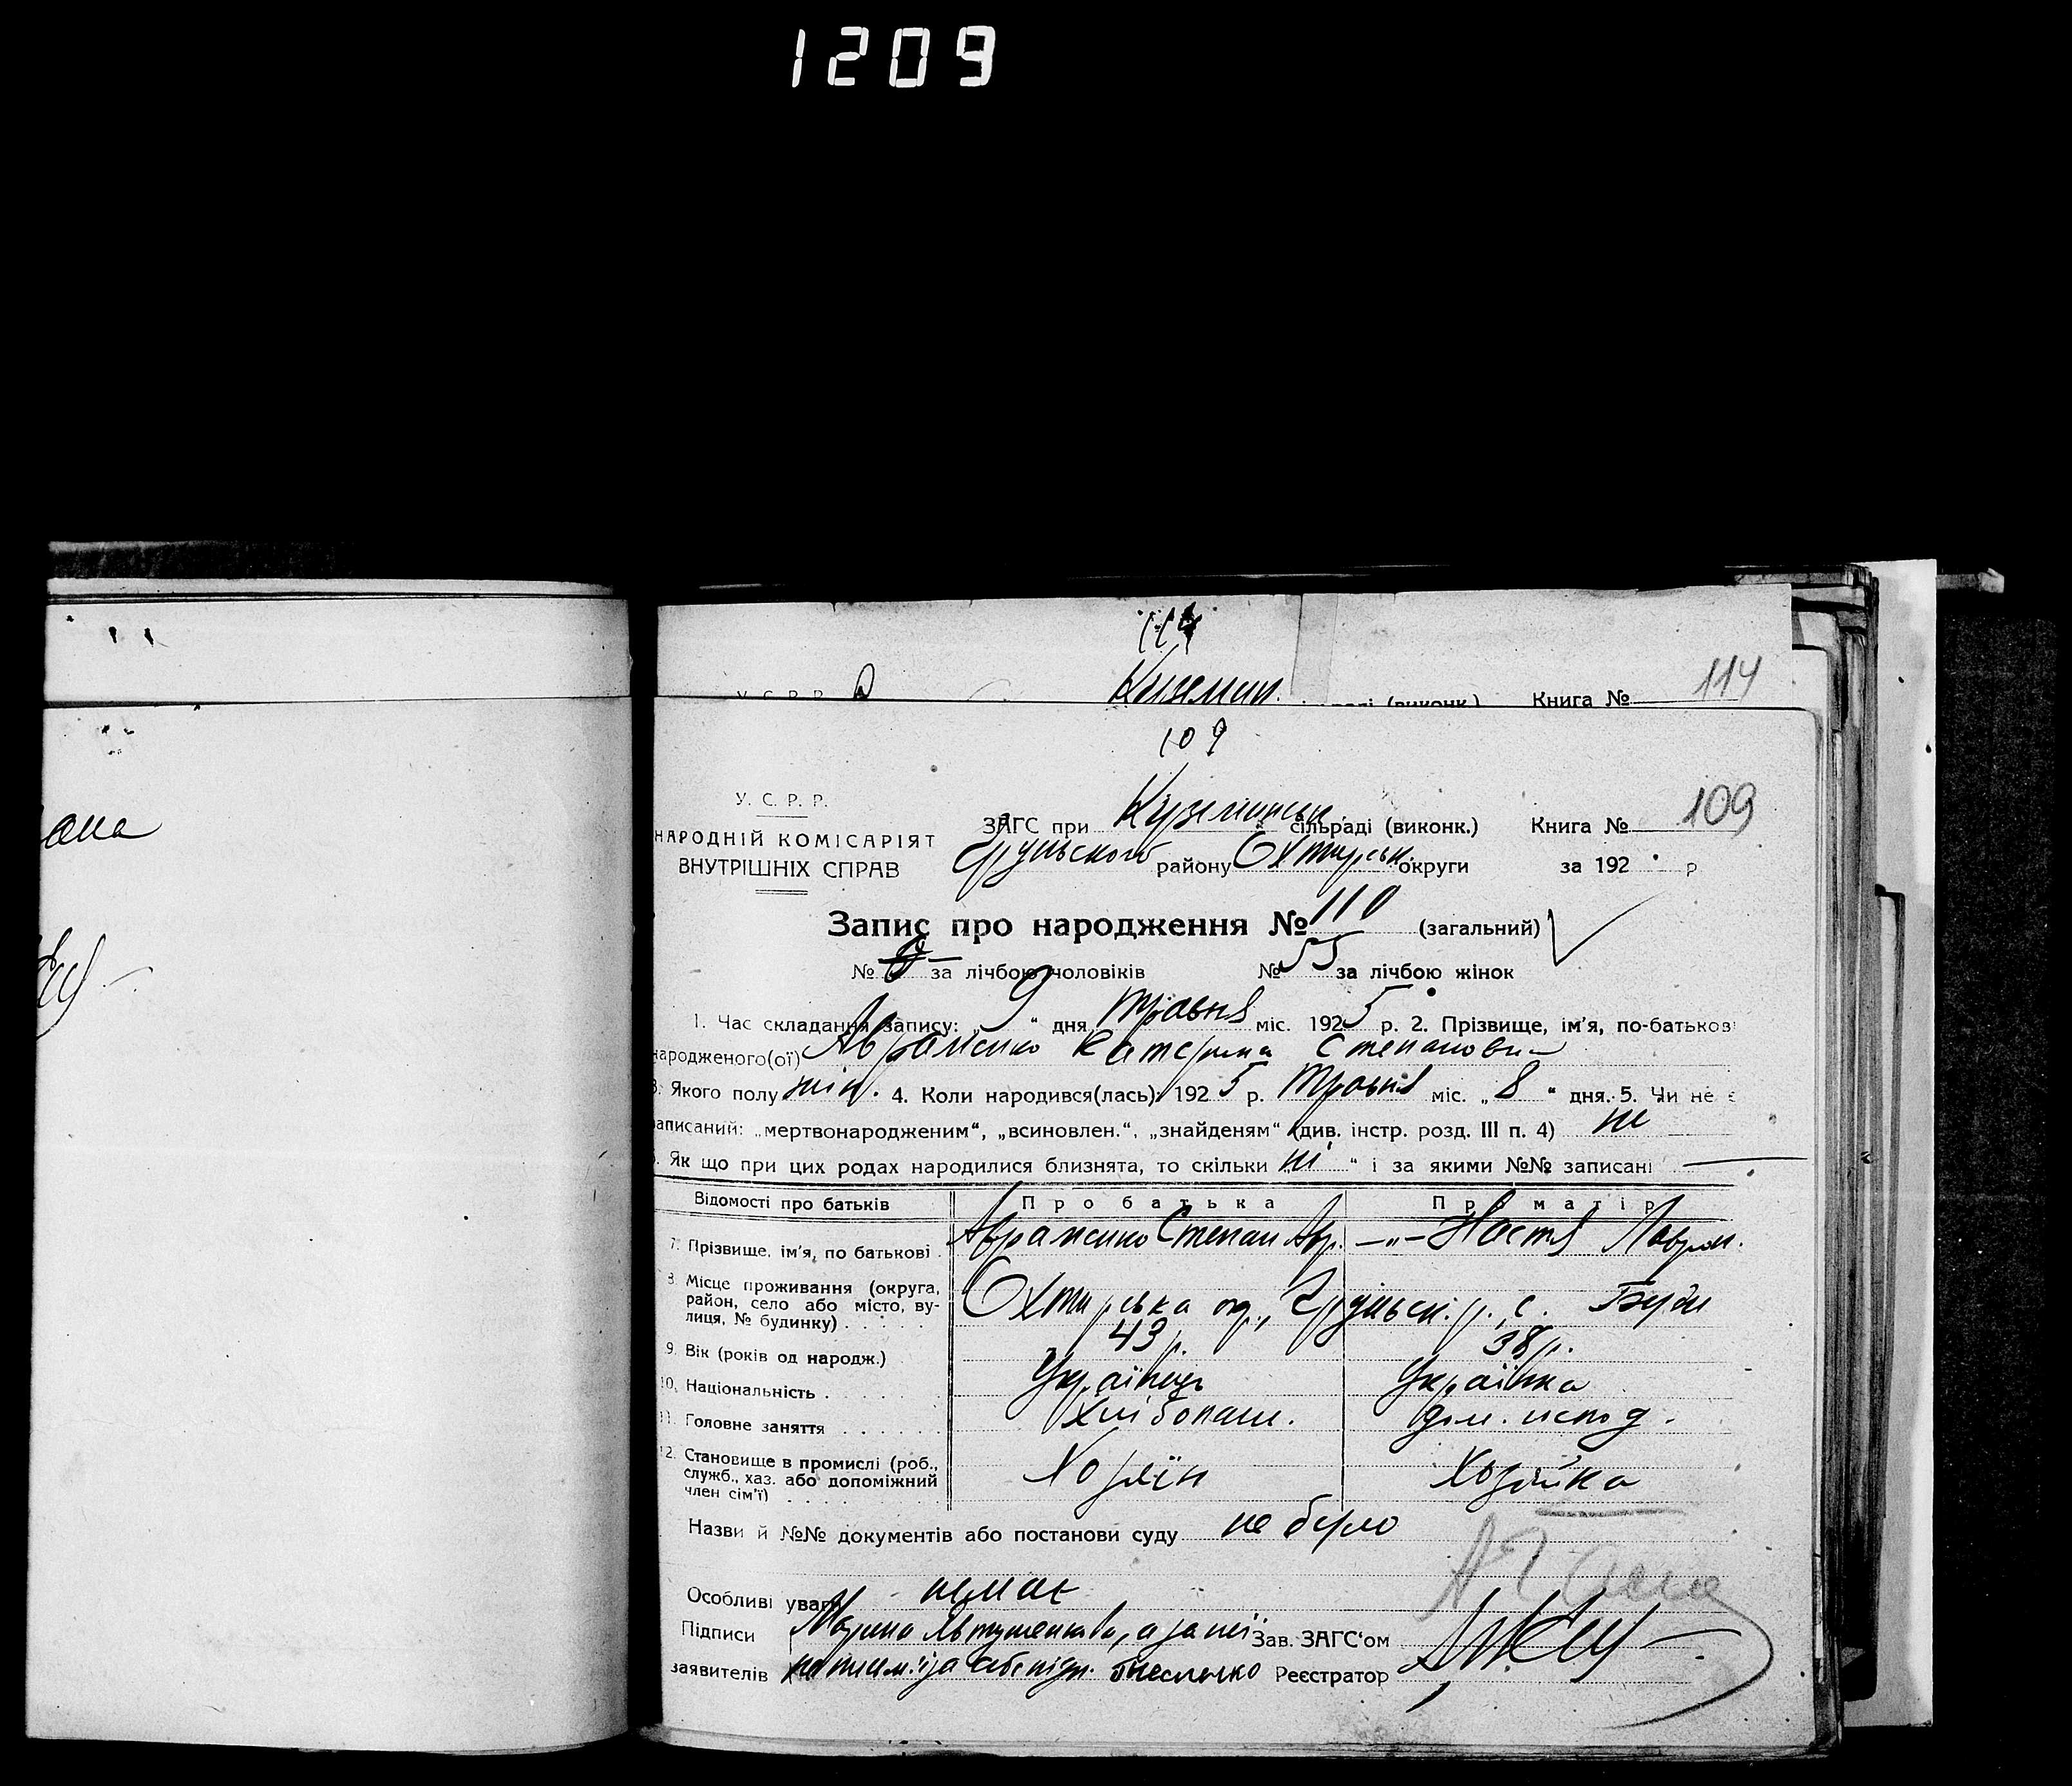 1209
114
Книга №
114
109
У. С. Р. Р.
НАРОДНІЙ КОМІСАРІЯТ
ВНУТРІШНІХ СПРАВ
ЗАГС при Куземинськ. сільраді (виконк.) Книга № 109
Грунського району Охтирськ. округи за 192 р
Запис про народження № 110 (загальний)
№ за лічбою чоловіків № 55 за лічбою жінок
1. Час складання запису: „ 9 “ дня травня міс. 1925 р. 2. Прізвище, ім'я, по-батькові
народженого(ої) Авраменко Катерина Степановн
3. Якого полу жін. 4. Коли народився(лась): 1925 р. травня міс. „ 8 “ дня. 5. Чи не є
записаний: „мертвонародженим“, „всиновлен.“, „знайденям“ (див. інстр. розд. III п. 4) ні
6. Як що при цих родах народилися близнята, то скільки ні “ і за якими №№ записані —
Відомості про батьків Про батька Про матір
7. Прізвище, ім'я, по батькові Авраменко Степан Авр. —„— Настя Лаврен.
8. Місце проживання (округа, район, село або місто, вулиця, № будинку) Охтирська ок., Грунськ. р., с.
9. Вік (років од народж.) 43 р. 38 р.
10. Національність Українець Українка
11. Головне заняття Хлібопаш. дом. господ.
12. Становище в промислі (роб., служб., хаз. або допоміжний член сім'ї) Хозяїн Хозяйка
Назви й №№ документів або постанови суду не було
Особливі уваги немає
Підписи Марина а за неї Зав. ЗАГС'ом
заявителів Реєстратор